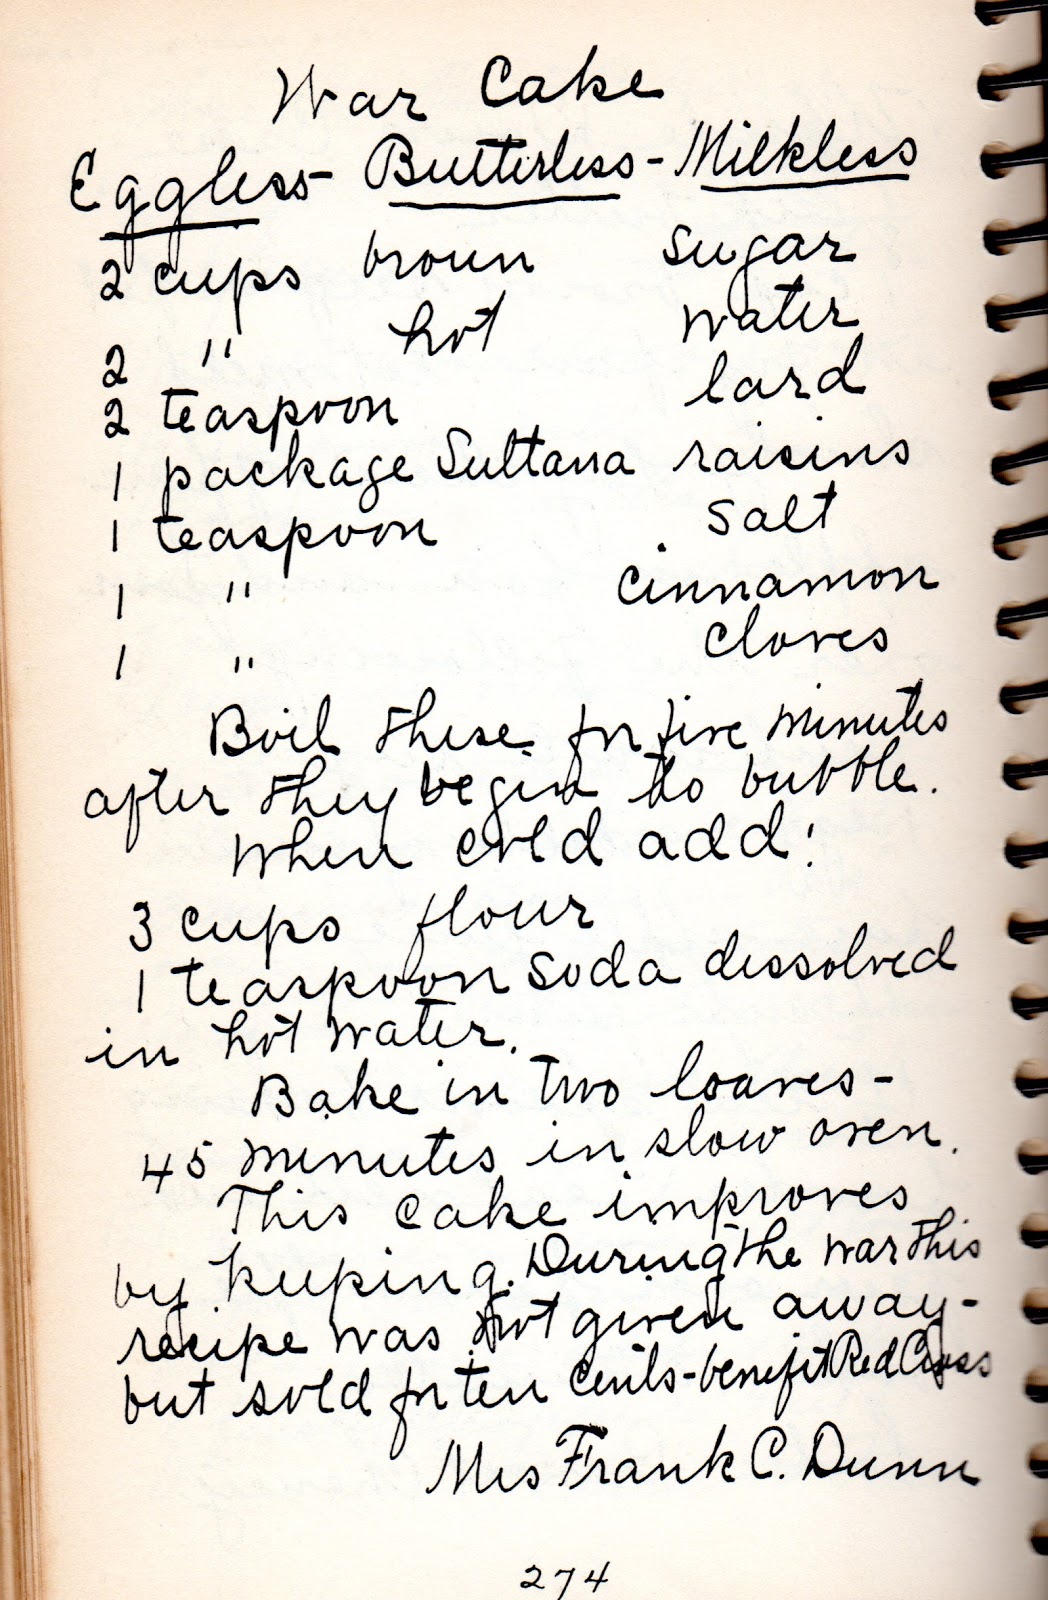 War Cake
Eggless - Butterless - Milkless
2 cups brown sugar
2 " hot water
2 teaspoon lard
1 package Sultana raisins
1 teaspoon salt
1 " cinnamon
1 " cloves
Boil these for five minutes
after they begin to bubble.
When cold add:
3 cups flour
1 teaspoon soda dissolved
in hot water.
Bake in two loaves -
45 minutes in slow oven.
This cake improves
by keeping. During the war this
recipe was not given away -
but sold for ten cents - benefit Red Cross
Mrs Frank C. Dunn
274